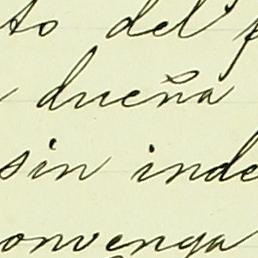 to del f
dueña
sin inde
onvenga